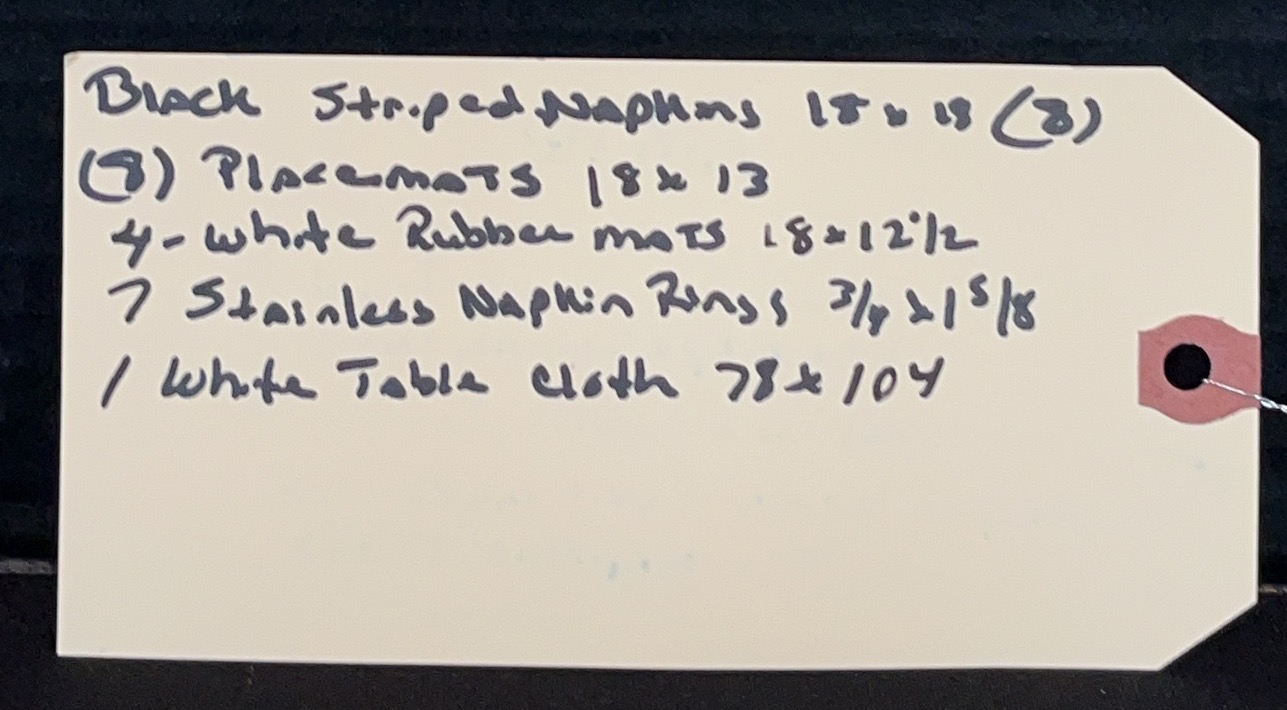 Black Striped Napkins 18 x 18 (8)
(8) Placemats 18 x 13
4- white Rubber mats 18 x 12 1/2
7 Stainless Napkin Rings 3/4 x 1 5/8
1 White Table cloth 78 x 104